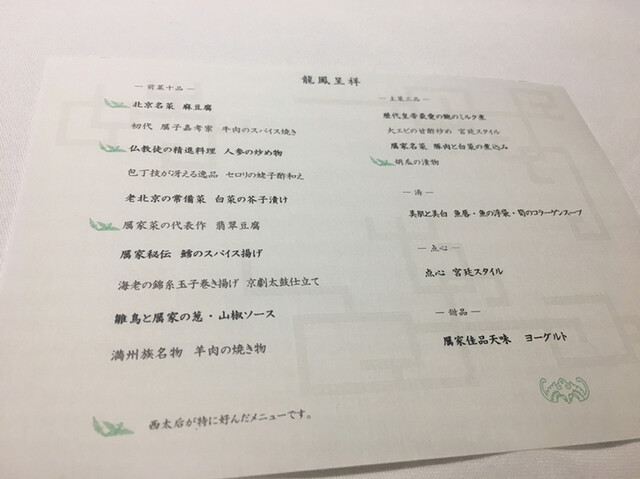 龍鳳呈祥
— 前菜十品 —
北京名菜 麻豆腐
初代 厲子嘉考案 牛肉のスパイス焼き
仏教徒の精進料理 人参の炒め物
包丁技が冴える逸品 セロリの蝦子酢和え
老北京の常備菜 白菜の芥子漬け
厲家菜の代表作 翡翠豆腐
厲家秘伝 鱈のスパイス揚げ
海老の錦糸玉子巻き揚げ 京劇太鼓仕立て
雛鳥と厲家の葱・山椒ソース
満州族名物 羊肉の焼き物
西太后が特に好んだメニューです。
— 主菜三品 —
歴代皇帝最愛の鮑のミルク煮
大エビの甘酢炒め 宮廷スタイル
厲家名菜 豚肉と白菜の煮込み
胡瓜の漬物
— 湯 —
美肌と美白 魚唇・魚の浮袋・筍のコラーゲンスープ
— 点心 —
点心 宮廷スタイル
— 甜品 —
厲家佳品天味 ヨーグルト